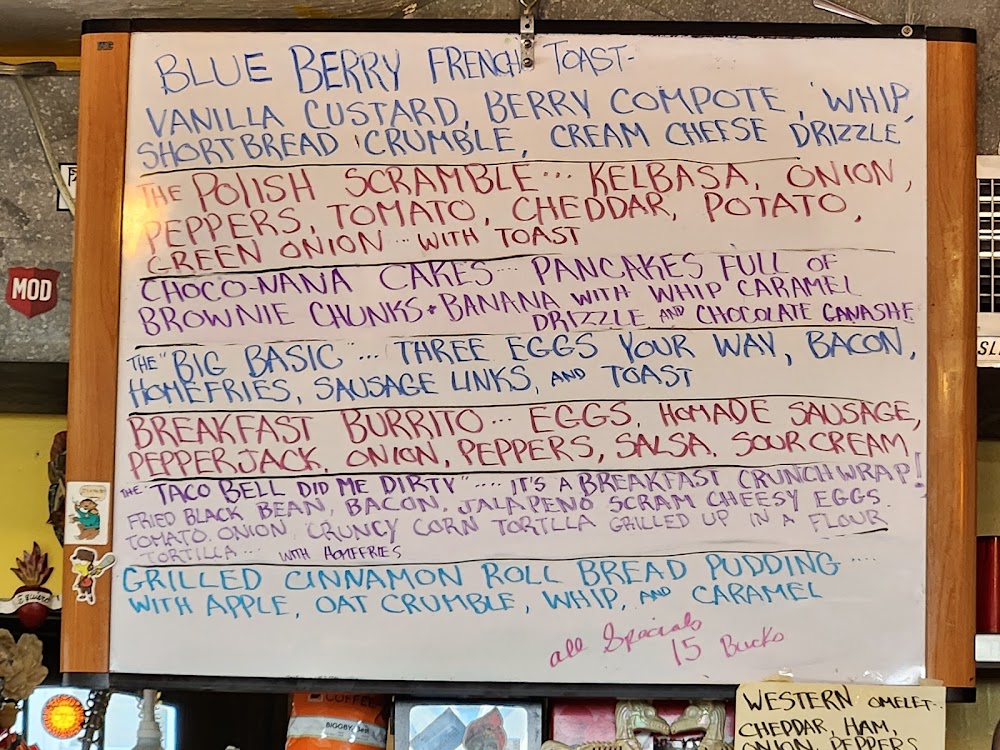 BLUE BERRY FRENCH TOAST-
VANILLA CUSTARD, BERRY COMPOTE, WHIP,
SHORTBREAD CRUMBLE, CREAM CHEESE DRIZZLE
THE POLISH SCRAMBLE... KELBASA, ONION,
PEPPERS, TOMATO, CHEDDAR, POTATO,
GREEN ONION... WITH TOAST
CHOCO-NANA CAKES... PANCAKES FULL OF
BROWNIE CHUNKS + BANANA WITH WHIP CARAMEL
DRIZZLE AND CHOCOLATE GANASHE
THE "BIG BASIC"... THREE EGGS YOUR WAY, BACON,
HOMEFRIES, SAUSAGE LINKS, AND TOAST
BREAKFAST BURRITO... EGGS, HOMADE SAUSAGE,
PEPPERJACK, ONION, PEPPERS, SALSA, SOUR CREAM
THE "TACO BELL DID ME DIRTY".... IT'S A BREAKFAST CRUNCHWRAP!
FRIED BLACK BEAN, BACON, JALAPENO SCRAM CHEESY EGGS
TOMATO, ONION CRUNCY CORN TORTILLA GRILLED UP IN A FLOUR
TORTILLA... WITH HOMEFRIES
GRILLED CINNAMON ROLL BREAD PUDDING....
WITH APPLE, OAT CRUMBLE, WHIP, AND CARAMEL
all Specials
15 Bucks
MOD
COFFEE
BIGGBY
WESTERN OMELET..
CHEDDAR, HAM,
ONION, PEPPERS